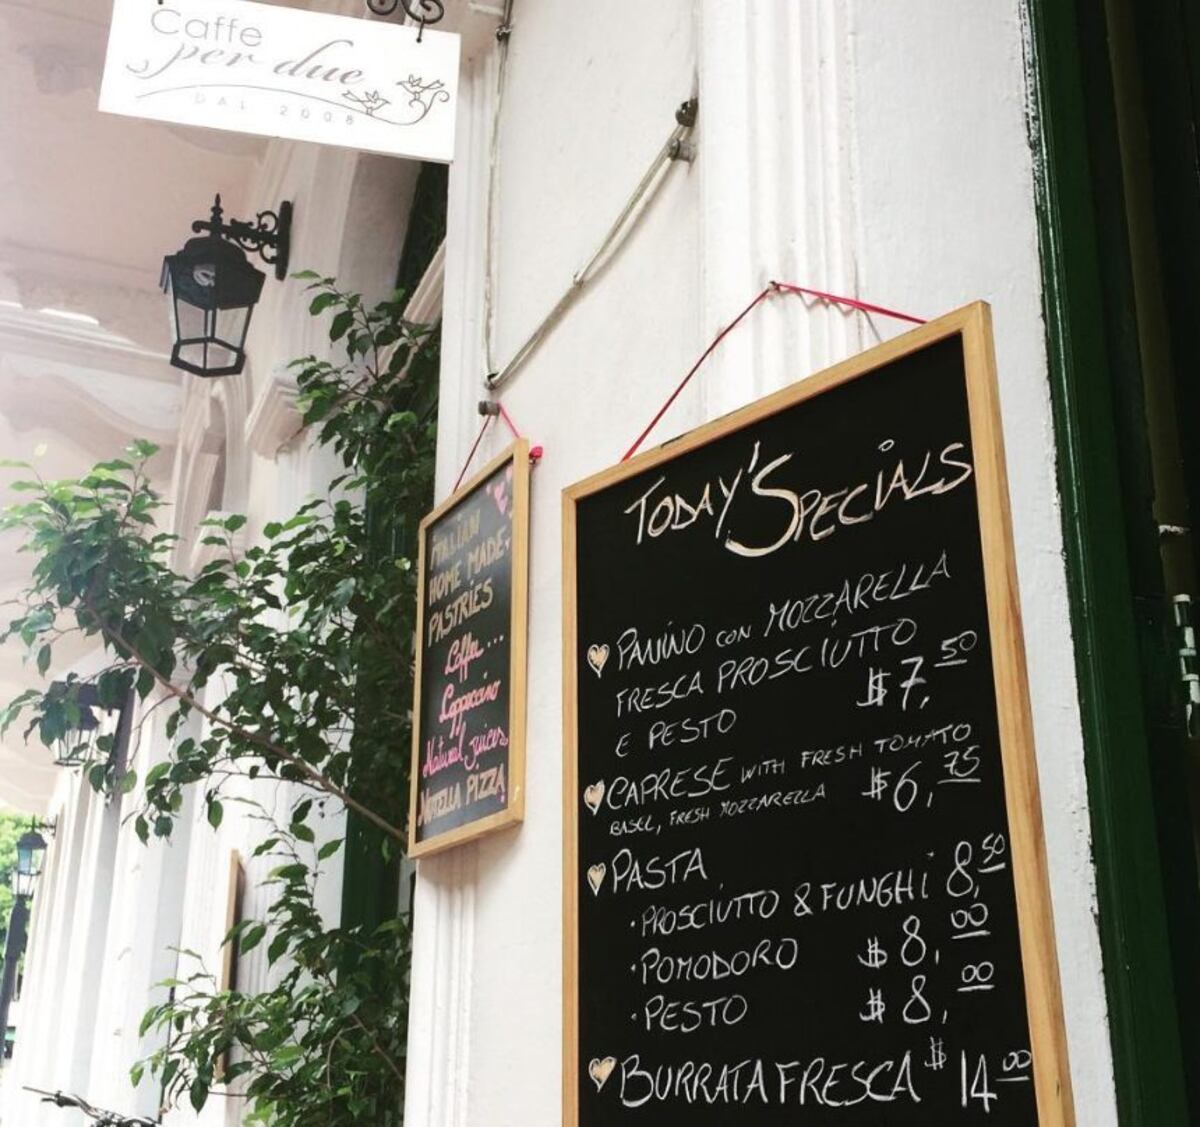 Caffe
per due
DAL 2008
ITALIAN
HOME MADE
PASTRIES
Coffee...
Cappuccino
Natural juices
NUTELLA PIZZA
TODAY'S SPECIALS
PANINO CON MOZZARELLA
FRESCA PROSCIUTTO
E PESTO $7,50
CAPRESE WITH FRESH TOMATO
BASEL, FRESH MOZZARELLA $6,75
PASTA
• PROSCIUTTO & FUNGHI 8,50
• POMODORO $8,00
• PESTO $8,00
BURRATA FRESCA $14 00